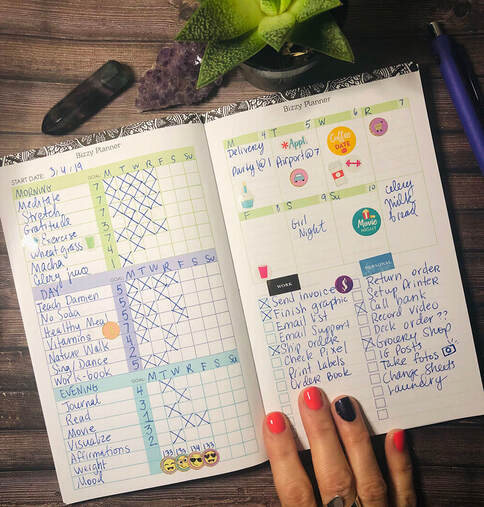 Bizzy Planner
START DATE: 3/4/19
MORNING GOAL: M T W R F S Su
Meditate 7
Stretch 7
Gratitude 7
* Exercise 3
wheat grass 7
Macha 4
Celery juice 7
DAY GOAL: M T W R F S Su
Teach Damien 5
No Soda 5
Healthy Meal 5
Vitamins
Nature Walk 4
Sing/Dance 2
Work-book 5
EVENING GOAL: M T W R F S Su
Journal 4
Read 3
Movie 1
Visualize 3
Affirmations 2
Weight 133 133 134 133
Mood
Bizzy Planner
M 4 T 5 W 6 R 7
Delivery
Party@1
*Appl.
Airport@7
COFFEE DATE
F 8 S 9 Su 10
Girl
Night
MOVIE NIGHT
Celery
milk
bread
WORK
Send invoice
Finish graphic
Email list
Email Support
Ship order
Check Pixel
Print Labels
Order Book
PERSONAL
Return order
Setup Printer
Call bank
Record video
Deck order ??
Grocery Shop
IG Posts
Take fotos
Change Sheets
Laundry